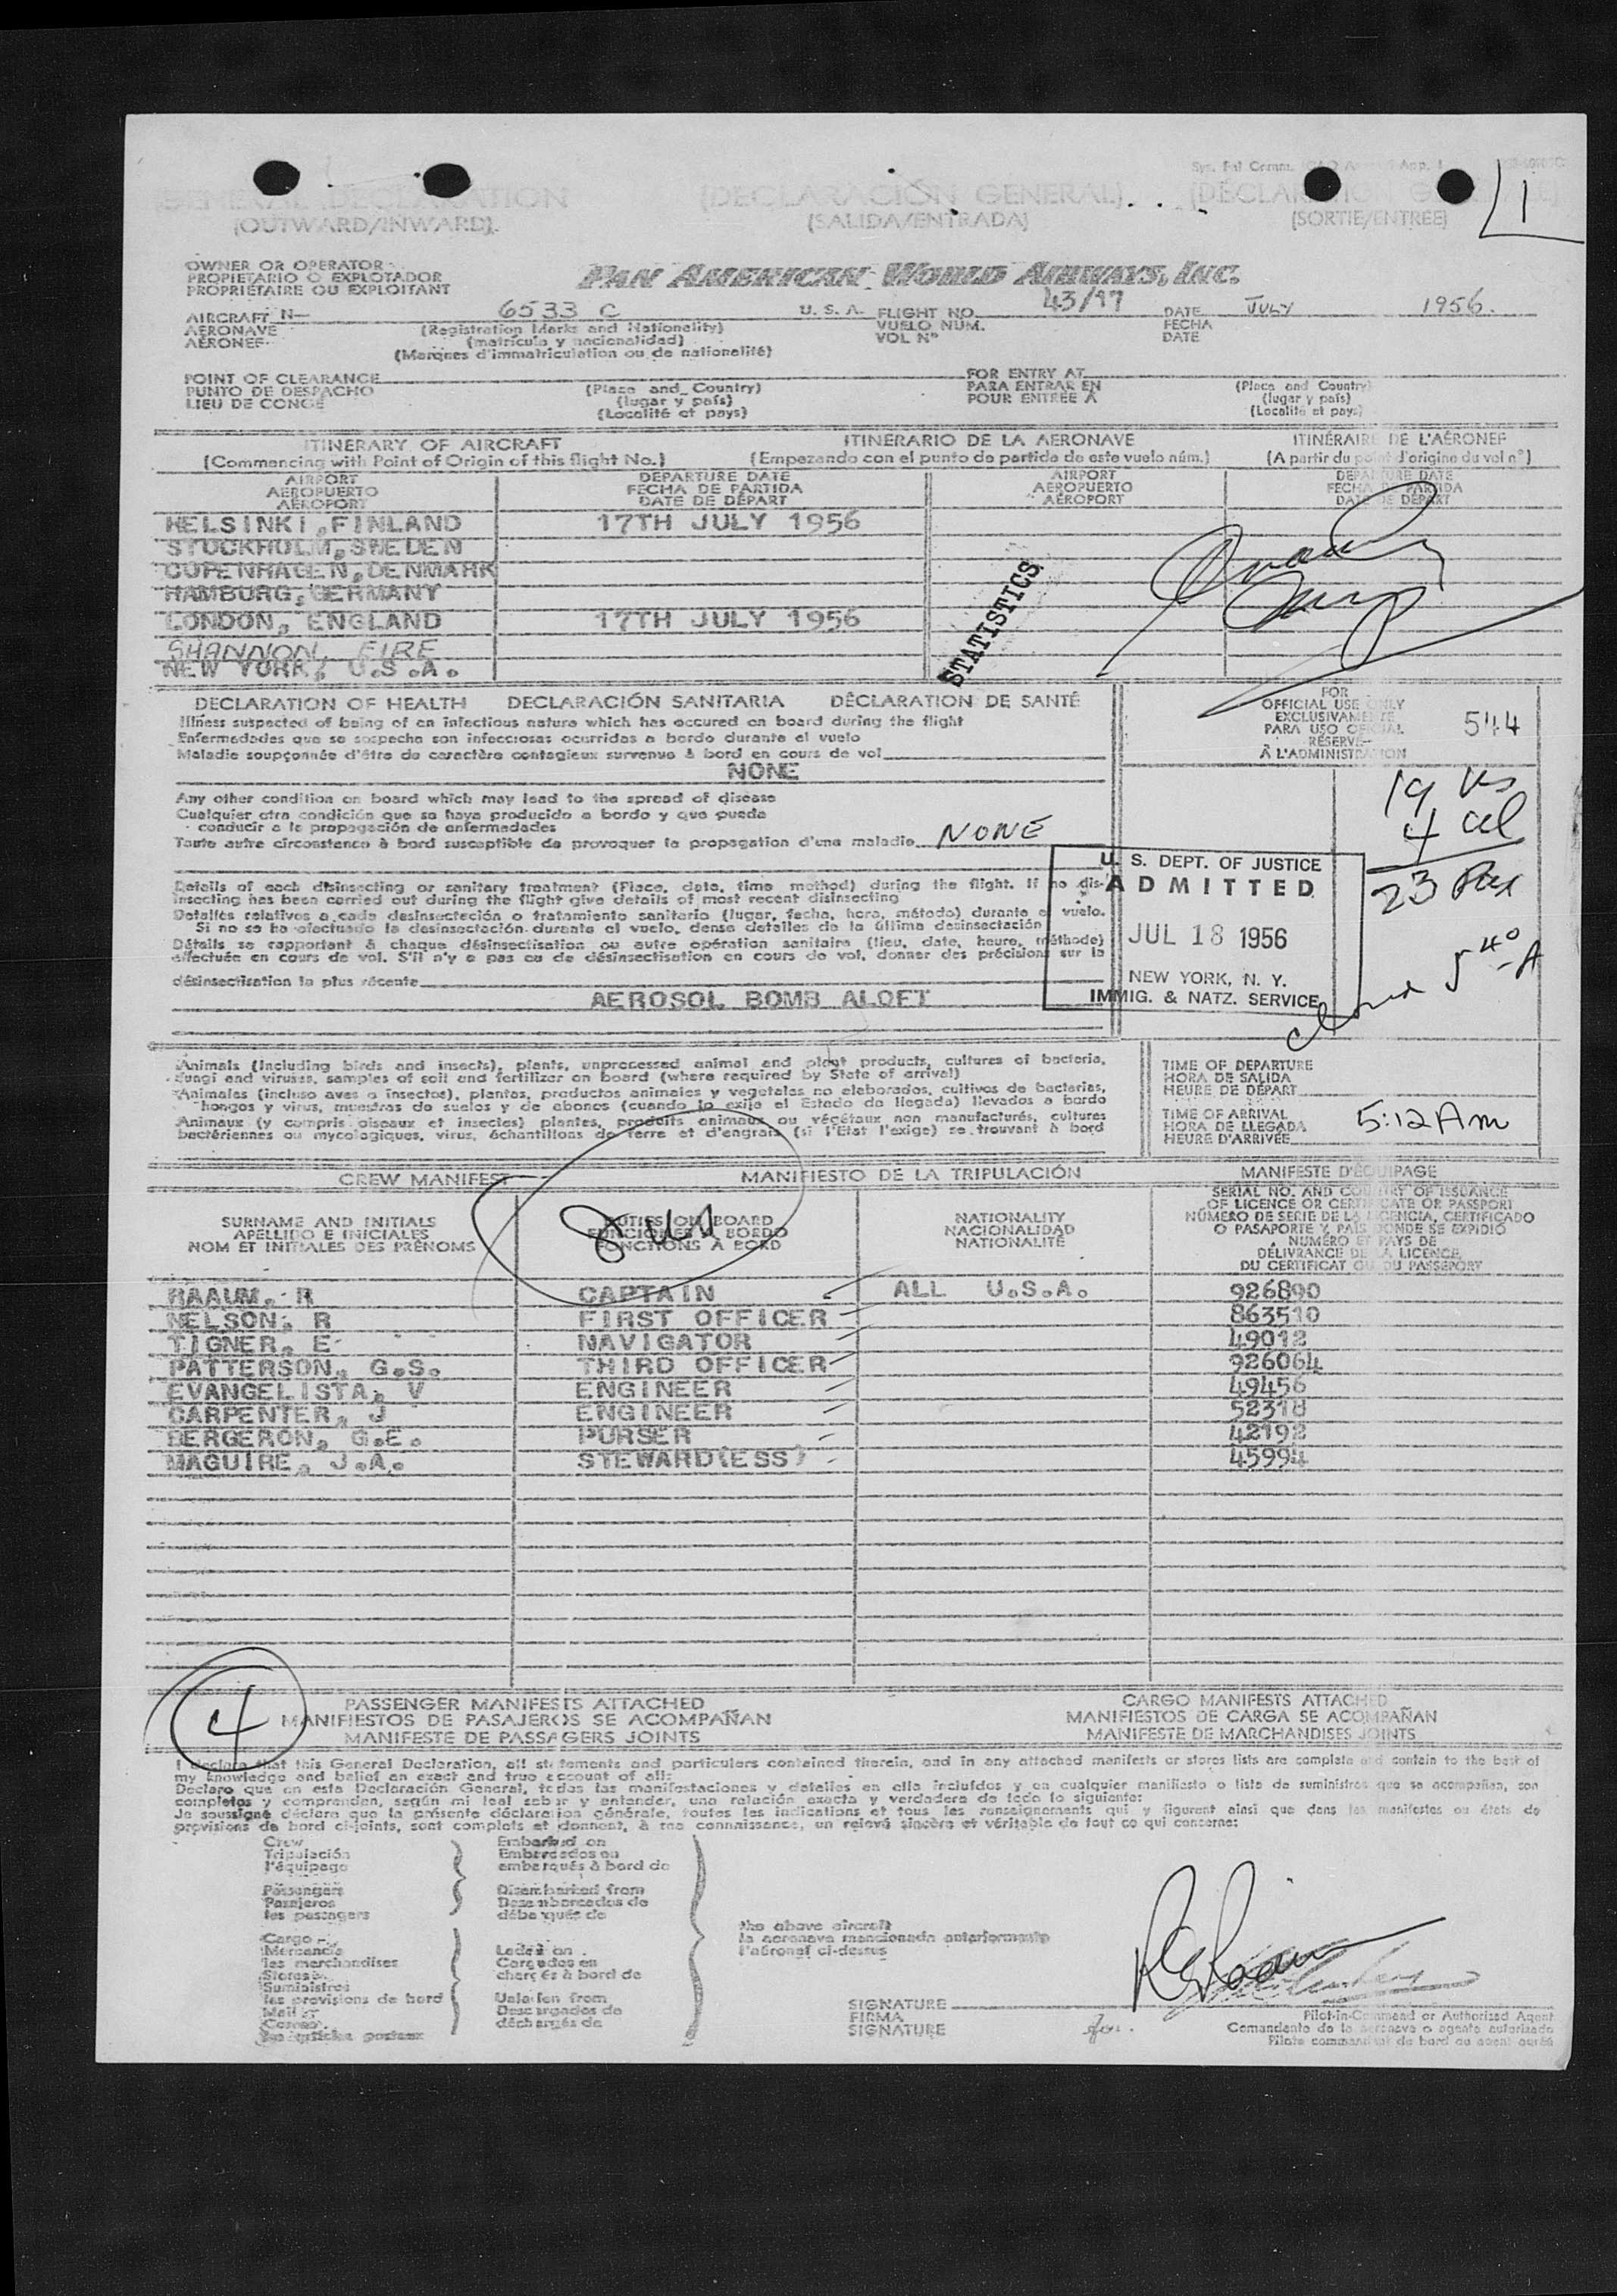 GENERAL DECLARATION
(OUTWARD/INWARD)
(DECLARACIÓN GENERAL)
(SALIDA/ENTRADA)
(DÉCLARATION
(SORTIE/ENTRÉE)
1
OWNER OR OPERATOR
PROPIETARIO O EXPLOTADOR
PROPRIÉTAIRE OU EXPLOITANT
PAN AMERICAN WORLD AIRWAYS, INC.
AIRCRAFT N- 6533 C U. S. A. FLIGHT NO. DATE JULY 1956.
AERONAVE (Registration Marks and Nationality) VUELO NÚM. FECHA
AÉRONEF (matrícula y nacionalidad) VOL Nº DATE
(Marques d'immatriculation ou de nationalité)
POINT OF CLEARANCE FOR ENTRY AT
PUNTO DE DESPACHO (Place and Country) PARA ENTRAR EN (Place and Country)
LIEU DE CONGÉ (lugar y país) POUR ENTRÉE À (lugar y país)
(Localité et pays) (Localité et pays)
ITINERARY OF AIRCRAFT ITINERARIO DE LA AERONAVE ITINÉRAIRE DE L'AÉRONEF
(Commencing with Point of Origin of this flight No.) (Empezando con el punto de partida de este vuelo núm.) (A partir du point d'origine du vol nº)
AIRPORT DEPARTURE DATE AIRPORT DEPARTURE DATE
AEROPUERTO FECHA DE PARTIDA AEROPUERTO FECHA DE PARTIDA
AÉROPORT DATE DE DÉPART AÉROPORT DATE DE DÉPART
HELSINKI, FINLAND 17TH JULY 1956
STOCKHOLM, SWEDEN
COPENHAGEN, DENMARK
HAMBURG, GERMANY
LONDON, ENGLAND 17TH JULY 1956
SHANNON, EIRE
NEW YORK, U.S.A.
STATISTICS
DECLARATION OF HEALTH DECLARACIÓN SANITARIA DÉCLARATION DE SANTÉ
Illness suspected of being of an infectious nature which has occured on board during the flight
Enfermedades que se sospecha son infecciosas ocurridas a bordo durante el vuelo
Maladie soupçonnée d'être de caractère contagieux survenue à bord en cours de vol
NONE
Any other condition on board which may lead to the spread of disease
Cualquier otra condición que se haya producido a bordo y que pueda
conducir a la propagación de enfermedades
Toute autre circonstance à bord susceptible de provoquer la propagation d'une maladie NONE
Details of each disinsecting or sanitary treatment (Place, date, time method) during the flight. If no dis-
insecting has been carried out during the flight give details of most recent disinsecting
Detalles relativos a cada desinsectación o tratamiento sanitario (lugar, fecha, hora, método) durante el vuelo.
Si no se ha efectuado la desinsectación durante el vuelo, dense detalles de la última desinsectación
Détails se rapportant à chaque désinsectisation ou autre opération sanitaire (lieu, date, heure, méthode)
effectuée en cours de vol. S'il n'y a pas eu de désinsectisation en cours de vol, donner des précisions sur la
désinsectisation la plus récente
AEROSOL BOMB ALOFT
FOR
OFFICIAL USE ONLY
EXCLUSIVAMENTE
PARA USO OFICIAL
RÉSERVÉ
À L'ADMINISTRATION
544
19 US
4 al
23 Pax
U. S. DEPT. OF JUSTICE
ADMITTED
JUL 18 1956
NEW YORK, N. Y.
IMMIG. & NATZ. SERVICE
Animals (including birds and insects), plants, unprocessed animal and plant products, cultures of bacteria,
fungi and viruses, samples of soil and fertilizer on board (where required by State of arrival)
Animales (incluso aves o insectos), plantas, productos animales y vegetales no elaborados, cultivos de bacterias,
hongos y virus, muestras de suelos y de abonos (cuando lo exija el Estado de llegada) llevados a bordo
Animaux (y compris oiseaux et insectes) plantes, produits animaux ou végétaux non manufacturés, cultures
bactériennes ou mycologiques, virus, échantillons de terre et d'engrais (si l'Etat l'exige) se trouvant à bord
TIME OF DEPARTURE
HORA DE SALIDA
HEURE DE DÉPART
TIME OF ARRIVAL
HORA DE LLEGADA
HEURE D'ARRIVÉE
5:12 Am
CREW MANIFEST MANIFIESTO DE LA TRIPULACIÓN MANIFESTE D'ÉQUIPAGE
8 US
SURNAME AND INITIALS
APELLIDO E INICIALES
NOM ET INITIALES DES PRÉNOMS
DUTIES ON BOARD
FUNCIONES A BORDO
FONCTIONS À BORD
NATIONALITY
NACIONALIDAD
NATIONALITÉ
SERIAL NO. AND COUNTRY OF ISSUANCE
OF LICENCE OR CERTIFICATE OR PASSPORT
NÚMERO DE SERIE DE LA LICENCIA, CERTIFICADO
O PASAPORTE Y PAÍS DONDE SE EXPIDIÓ
NUMÉRO ET PAYS DE
DÉLIVRANCE DE LA LICENCE,
DU CERTIFICAT OU DU PASSEPORT
RAAUM, R CAPTAIN ALL U.S.A. 926890
NELSON, R FIRST OFFICER 863510
TIGNER, E NAVIGATOR 49012
PATTERSON, G.S. THIRD OFFICER 926064
EVANGELISTA, V ENGINEER 49456
CARPENTER, J ENGINEER 52318
BERGERON, G.E. PURSER 42192
MAGUIRE, J.A. STEWARD(ESS) 45994
4
PASSENGER MANIFESTS ATTACHED CARGO MANIFESTS ATTACHED
MANIFIESTOS DE PASAJEROS SE ACOMPAÑAN MANIFIESTOS DE CARGA SE ACOMPAÑAN
MANIFESTE DE PASSAGERS JOINTS MANIFESTE DE MARCHANDISES JOINTS
I declare that this General Declaration, all statements and particulars contained therein, and in any attached manifests or stores lists are complete and contain to the best of
my knowledge and belief an exact and true account of all:
Declaro que en esta Declaración General, todas las manifestaciones y detalles en ella incluídos y en cualquier manifiesto o lista de suministros que se acompañan, son
completos y comprenden, según mi leal saber y entender, una relación exacta y verdadera de todo lo siguiente:
Je soussigné déclare que la présente déclaration générale, toutes les indications et tous les renseignements qui y figurent ainsi que dans les manifestes ou états de
provisions de bord ci-joints, sont complets et donnent, à ma connaissance, un relevé sincère et véritable de tout ce qui concerne:
Crew Embarked on
Tripulación Embarcados en
l'équipage embarqués à bord de
Passengers Disembarked from
Pasajeros Desembarcados de
les passagers débarqués de
the above aircraft
la aeronave mencionada anteriormente
l'aéronef ci-dessus
Cargo
Mercancía Laden on
les merchandises Cargados en
Stores chargés à bord de
Suministros
les provisions de bord Unladen from
Mail Descargados de
Correo déchargés de
SIGNATURE
FIRMA
SIGNATURE
for.
Pilot-in-Command or Authorized Agent
Comandante de la aeronave o agente autorizado
Pilote commandant de bord ou agent agréé